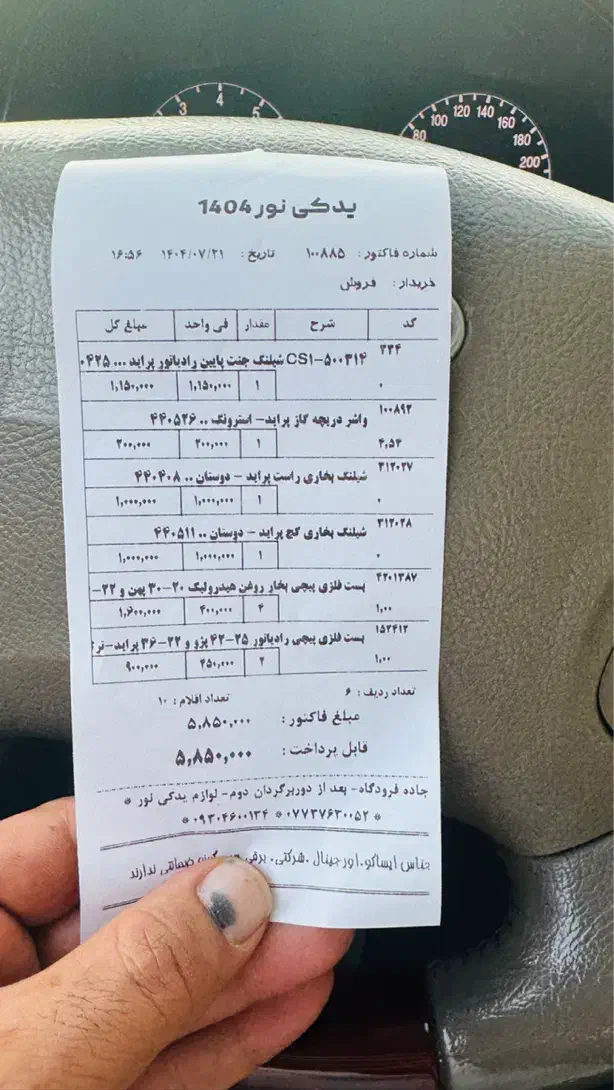 3 4 5
80 100 120 140 160 180 200
یدکی نور 1404
شماره فاکتور : ۱۰۰۸۸۵ تاریخ : ۱۴۰۴/۰۷/۲۱ ۱۶:۵۶
خریدار : فروش
کد شرح مقدار فی واحد مبلغ کل
۳۳۴ CS1-۵۰۰۳۱۴ شیلنگ جنت پایین رادیاتور پراید ... ۰۴۲۵
۰ ۱ ۱,۱۵۰,۰۰۰ ۱,۱۵۰,۰۰۰
۱۰۰۸۹۲ واشر دریچه گاز پراید- استرونگ .. ۴۴۰۵۲۶
۴,۵۴ ۱ ۲۰۰,۰۰۰ ۲۰۰,۰۰۰
۳۱۲۰۲۷ شیلنگ بخاری راست پراید - دوستان .. ۴۴۰۴۰۸
۰ ۱ ۱,۰۰۰,۰۰۰ ۱,۰۰۰,۰۰۰
۳۱۲۰۲۸ شیلنگ بخاری کج پراید - دوستان .. ۴۴۰۵۱۱
۰ ۱ ۱,۰۰۰,۰۰۰ ۱,۰۰۰,۰۰۰
۴۲۰۱۳۸۷ بست فلزی پیچی بخار روغن هیدرولیک ۲۰-۳۰ پهن و ۲۲-
۱,۰۰ ۴ ۴۰۰,۰۰۰ ۱,۶۰۰,۰۰۰
۱۵۲۴۱۲ بست فلزی پیچی رادیاتور ۲۵-۴۲ پژو و ۲۲-۳۶ پراید-
۱,۰۰ ۲ ۴۵۰,۰۰۰ ۹۰۰,۰۰۰
تعداد ردیف : ۶ تعداد اقلام : ۱۰
مبلغ فاکتور : ۵,۸۵۰,۰۰۰
قابل پرداخت : ۵,۸۵۰,۰۰۰
جاده فرودگاه- بعد از دوربرگردان دوم- لوازم یدکی نور *
* ۰۷۷۳۷۶۳۰۰۵۲ * ۰۹۳۰۴۶۰۰۱۳۴ *
جناس ایساکو.اورجینال .شرکتی. برقی ضمانتی ندارند